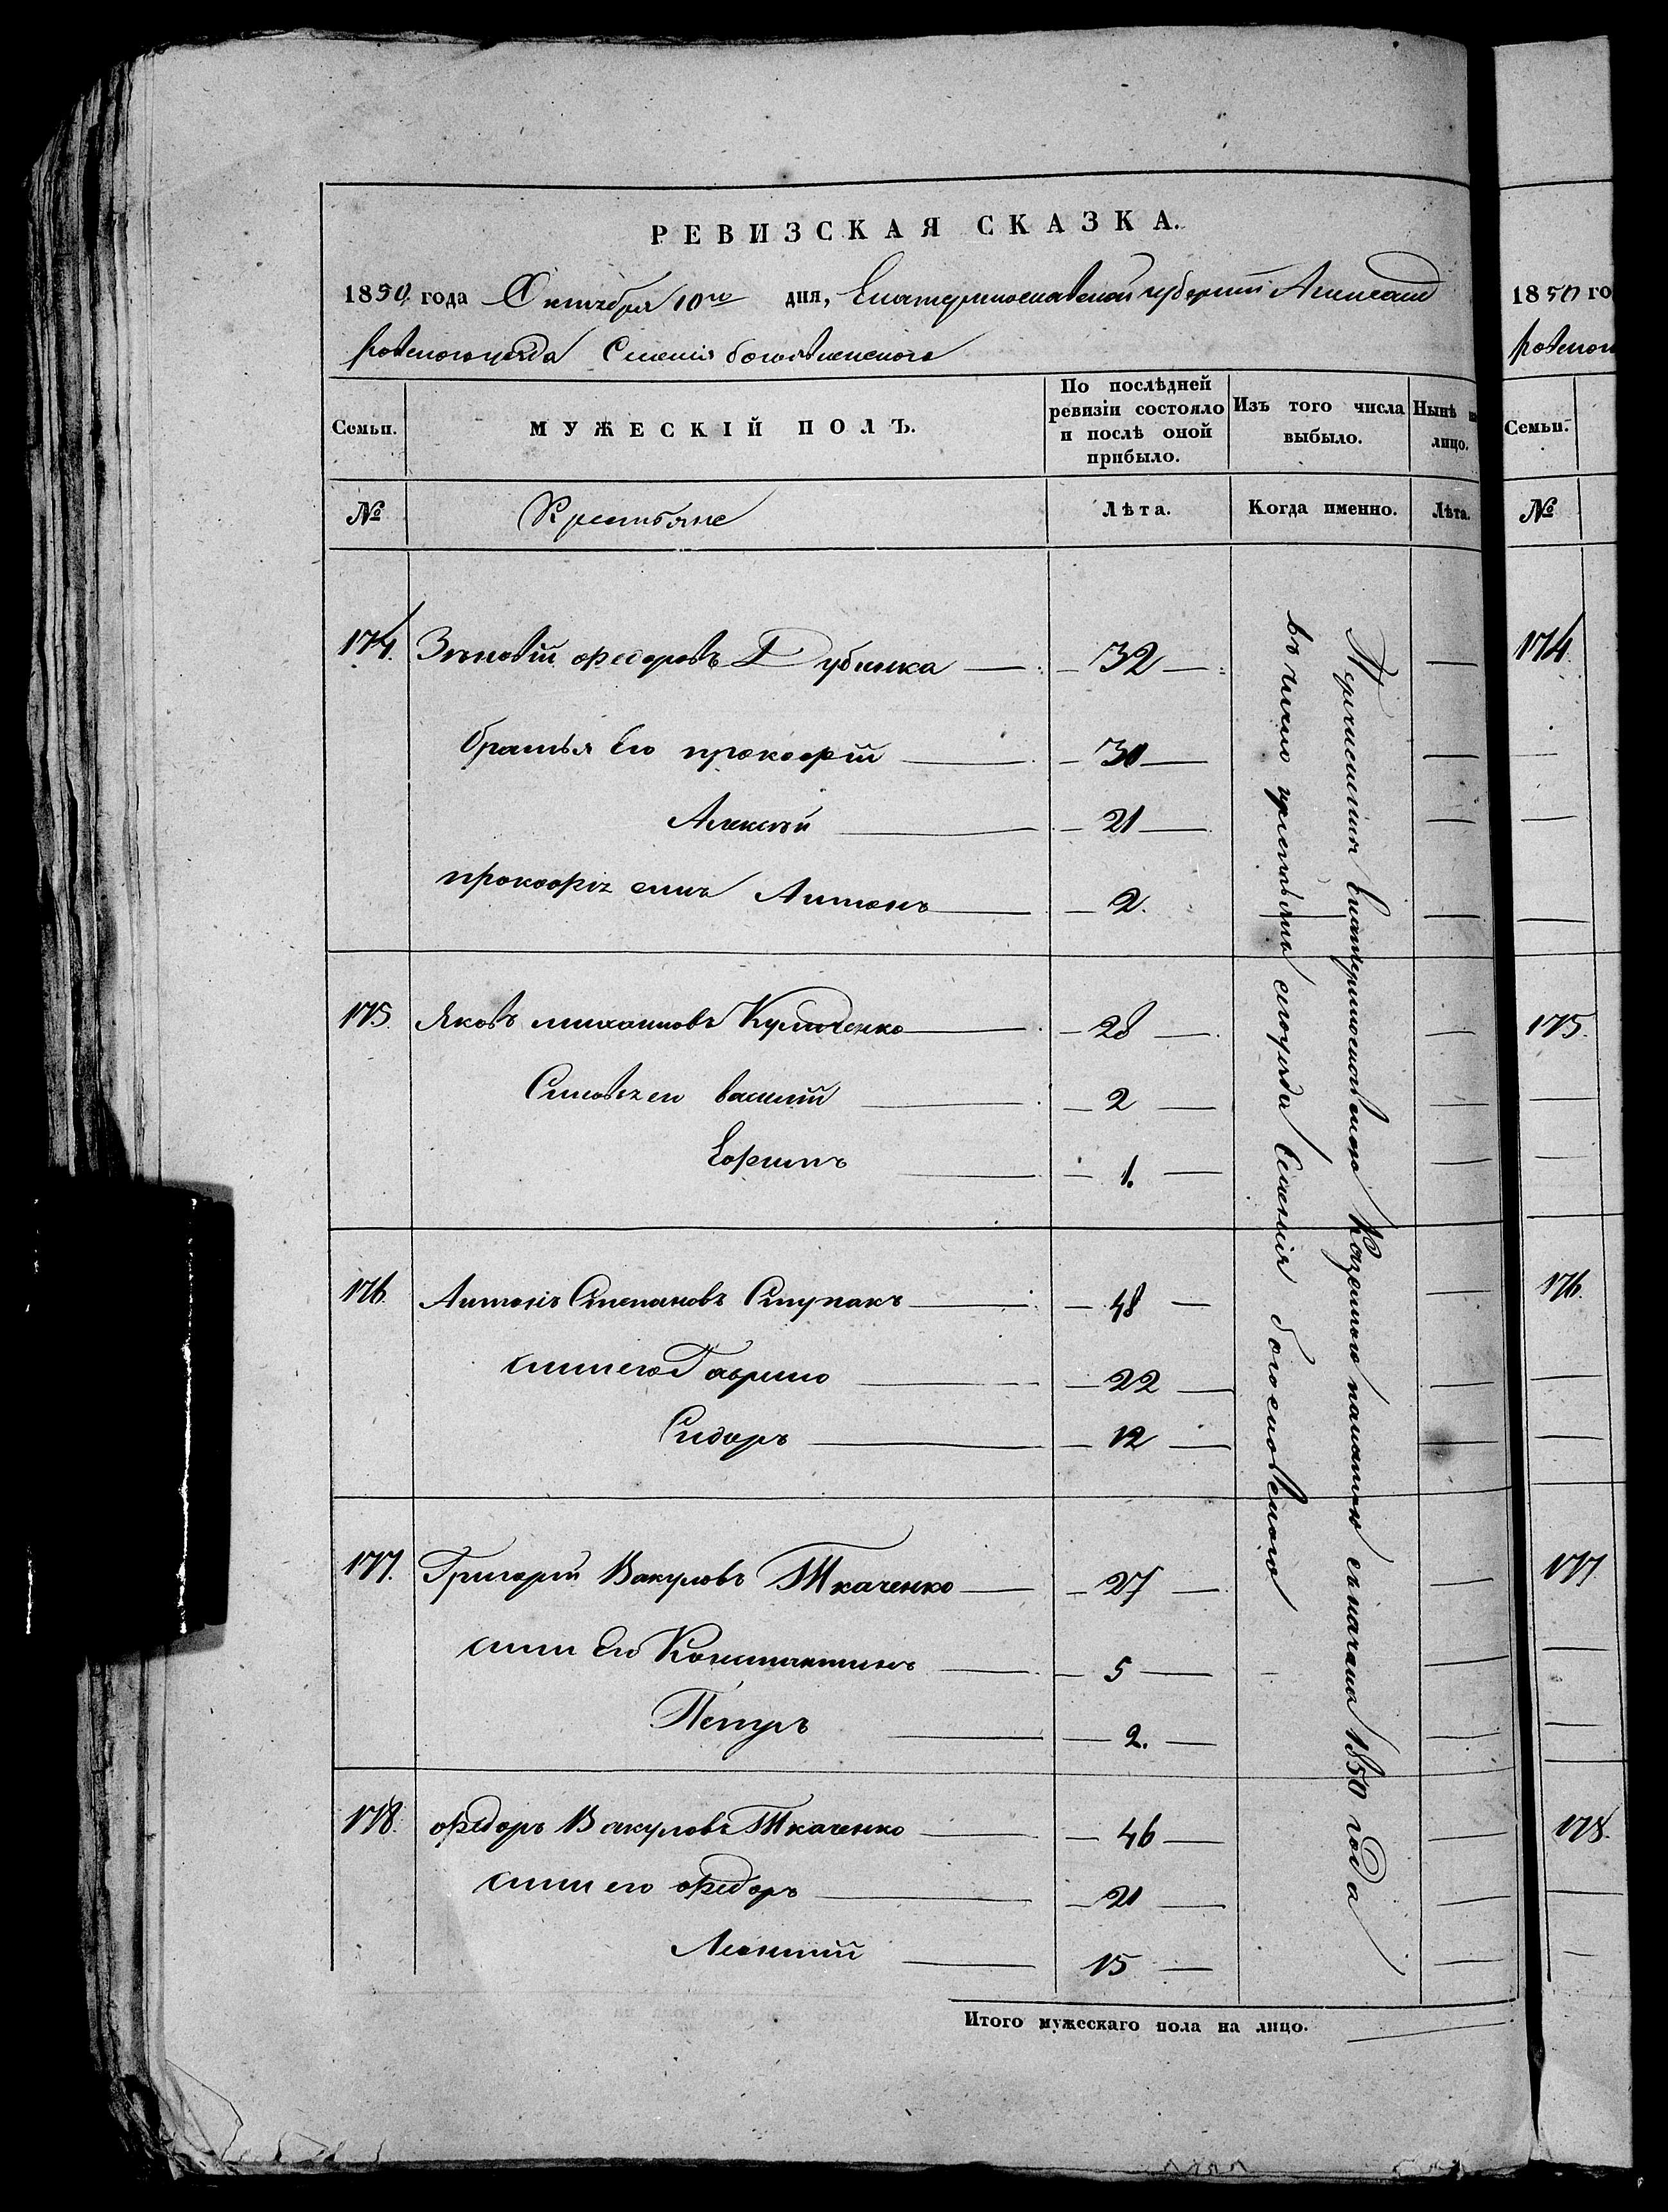 РЕВИЗСКАЯ СКАЗКА.
1850 года Октября 10го дня, Екатеринославской губернии Александ
ровского уезда Селения Богоявленского
Семьи.
МУЖЕСКІЙ ПОЛЪ.
По послѣдней ревизіи состояло и послѣ оной прибыло.
Изъ того числа выбыло.
Нынѣ на лицо.
№
Крестьяне
Лѣта.
Когда именно.
Лѣта.
174. Зѣновій Федоровъ Дубинка 32
братья его прокофій 30
Алексѣй 21
прокофія сынъ Антонъ 2.
175. Яковъ михаиловъ 28
Сыновья его василій 2
Ефримъ 1.
176. Антонъ Степановъ Ступакъ 48
сыны его Гаврило 22
Сидоръ 12
177. Григорій Вакуловъ Ткаченко 27
сыны Его Константинъ 5
Петръ 2.
178. Федоръ Вакуловъ Ткаченко 46
сыны его Федоръ 21
Леонтій 15
Перечислены Екатеринославскою Казенною палатою съ начала 1850 года
въ число крестьянъ сего уезда Селения
Итого мужескаго пола на лицо.
1850 го
ровского
Семьи.
№
174.
175.
176.
177
178.